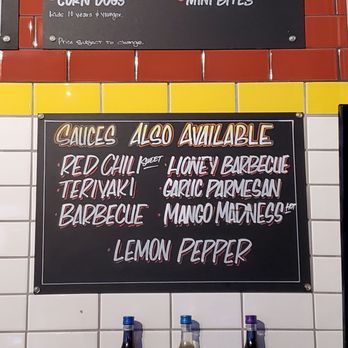 • CORN DOGS • MINI BITES
Kids 10 years & Younger.
Price Subject to Change.
SAUCES ALSO AVAILABLE
• RED CHILI SWEET • HONEY BARBECUE
• TERIYAKI GARLIC PARMESAN
• BARBECUE • MANGO MADNESS HOT
LEMON PEPPER